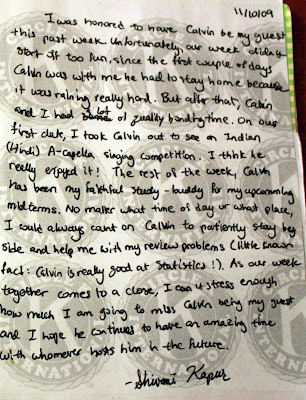 11/10/09
I was honored to have Calvin be my guest
this past week. Unfortunately, our week didn't
start off too fun, since the first couple of days
Calvin was with me he had to stay home because
it was raining really hard. But after that, Calvin
and I had some of quality bonding time. On our
first date, I took Calvin out to see an Indian
(Hindi) A-capella singing competition. I think he
really enjoyed it! The rest of the week, Calvin
has been my faithful study-buddy for my upcomming
midterms. No matter what time of day or what place,
I could always count on Calvin to patiently stay by
side and help me with my review problems (little known
fact: Calvin is really good at Statistics!). As our week
together comes to a close, I can't stress enough
how much I am going to miss Calvin being my guest
and I hope he continues to have an amazing time
with whomever hosts him in the future.
- Shivani Kapur